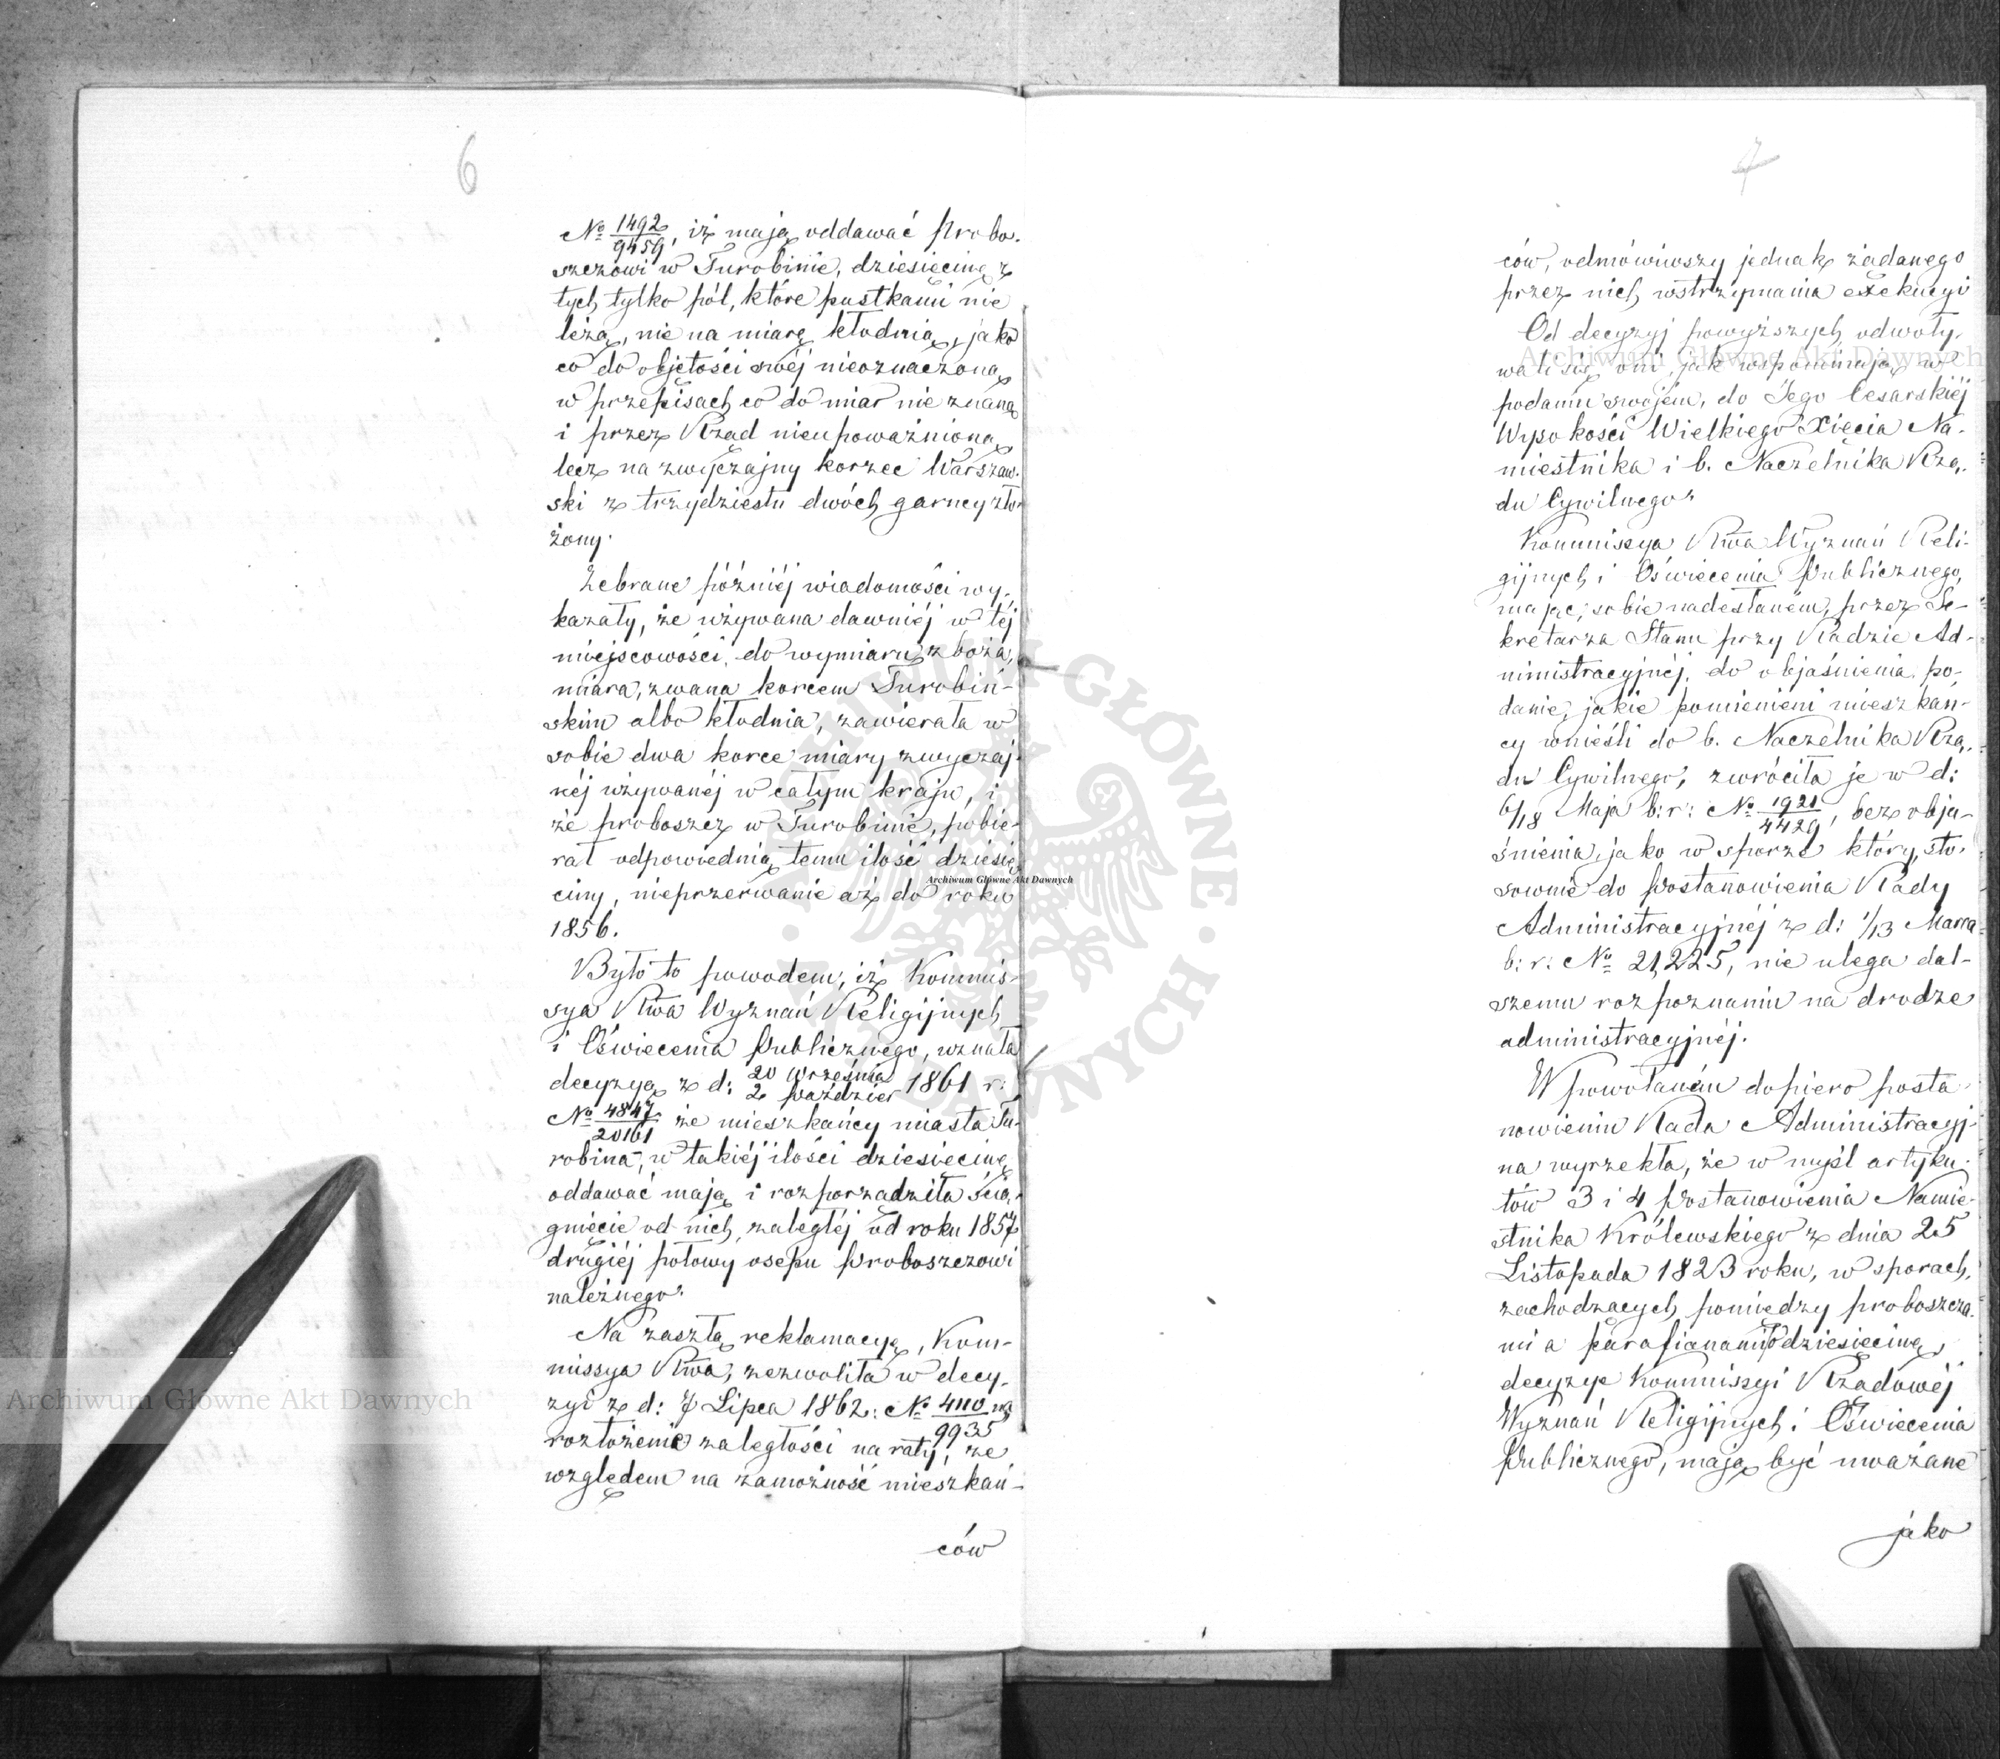 6
№ 1492/9459, iż mają oddawać Probo-
szczowi w Turobinie, dziesięcinę z
tych tylko pól, które pustkami nie
leżą, nie na miarę kłodnią, jako
co do objętości swéj nieoznaczoną
w przepisach co do miar nieznaną
i przez Rząd nieupoważnioną
lecz na zwyczajny korzec Warszaw-
ski z trzydziestu dwóch garncy zło-
żony.
Zebrane późniéj wiadomości wy-
kazały, że używana dawniéj w téj
miejscowości, do wymiaru zboża,
miara, zwana korcem Turobiń-
skim albo kłodnia, zawierała w
sobie dwa korce miary zwyczaj-
néj używanéj w całym kraju, i
że proboszcz w Turobinie, pobie-
rał odpowiednią temu ilość dziesię-
ciny, nieprzerwanie aż do roku
1856.
Było to powodem, iż Kommis-
sya Rwa Wyznań Religijnych
i Oświecenia Publicznego, uznała
decyzyą z d: 20 Września/2 Paździer 1861 r:
№ 4847/20161 że mieszkańcy miasta Tu-
robina, w takiéj ilości dziesięcinę
oddawać mają i rozporządziła ścią-
gnięcie od nich, zaległéj od roku 1857
drugiéj połowy osepu Proboszczowi
należnego.
Na zaszłą reklamacyę, Kom-
missya Rwa, zezwoliła w decy-
zyi z d: 7 Lipca 1862: № 4110/9935 na
rozłożenie zaległości na raty, ze
względem na zamożność mieszkań-
ców
7
ców, odmówiwszy jednak żądanego
przez nich wstrzymania exekucyi
Od decyzyj powyższych odwoły-
wali się oni, jak wspominają w
podaniu swojém, do Jego Cesarskiéj
Wysokości Wielkiego Xięcia Na-
miestnika i b. Naczelnika Rzą-
du Cywilnego.
Kommissya Rwa Wyznań Reli-
gijnych i Oświecenia Publicznego,
mając sobie nadesłaném, przez Se-
kretarza Stanu przy Radzie Ad-
ministracyjnéj, do objaśnienia po-
danie, jakie pomienieni mieszkań-
cy wnieśli do b. Naczelnika Rzą-
du Cywilnego, zwróciła je w d:
6/18 Maja b: r: № 1921/4429, bez obja-
śnienia, jako w sporze który, sto-
sownie do Postanowienia Rady
Administracyjnéj z d: 1/13 Marca
b: r: № 21,225, nie ulega dal-
szemu rozpoznaniu na drodze
administracyjnéj.
W powołaném dopiero posta-
nowieniu Rada Administracyj-
na wyrzekła, że w myśl artyku-
łów 3 i 4 Postanowienia Namie-
stnika Królewskiego z dnia 25
Listopada 1823 roku, w sporach,
zachodzących pomiędzy proboszcza-
mi a parafianami o dziesięcinę,
decyzye Kommissyi Rządowéj
Wyznań Religijnych i Oświecenia
Publicznego, mają być uważane
jako
Archiwum Główne Akt Dawnych
Archiwum Główne Akt Dawnych
Archiwum Główne Akt Dawnych
ARCHIWUM GŁÓWNE AKT DAWNYCH